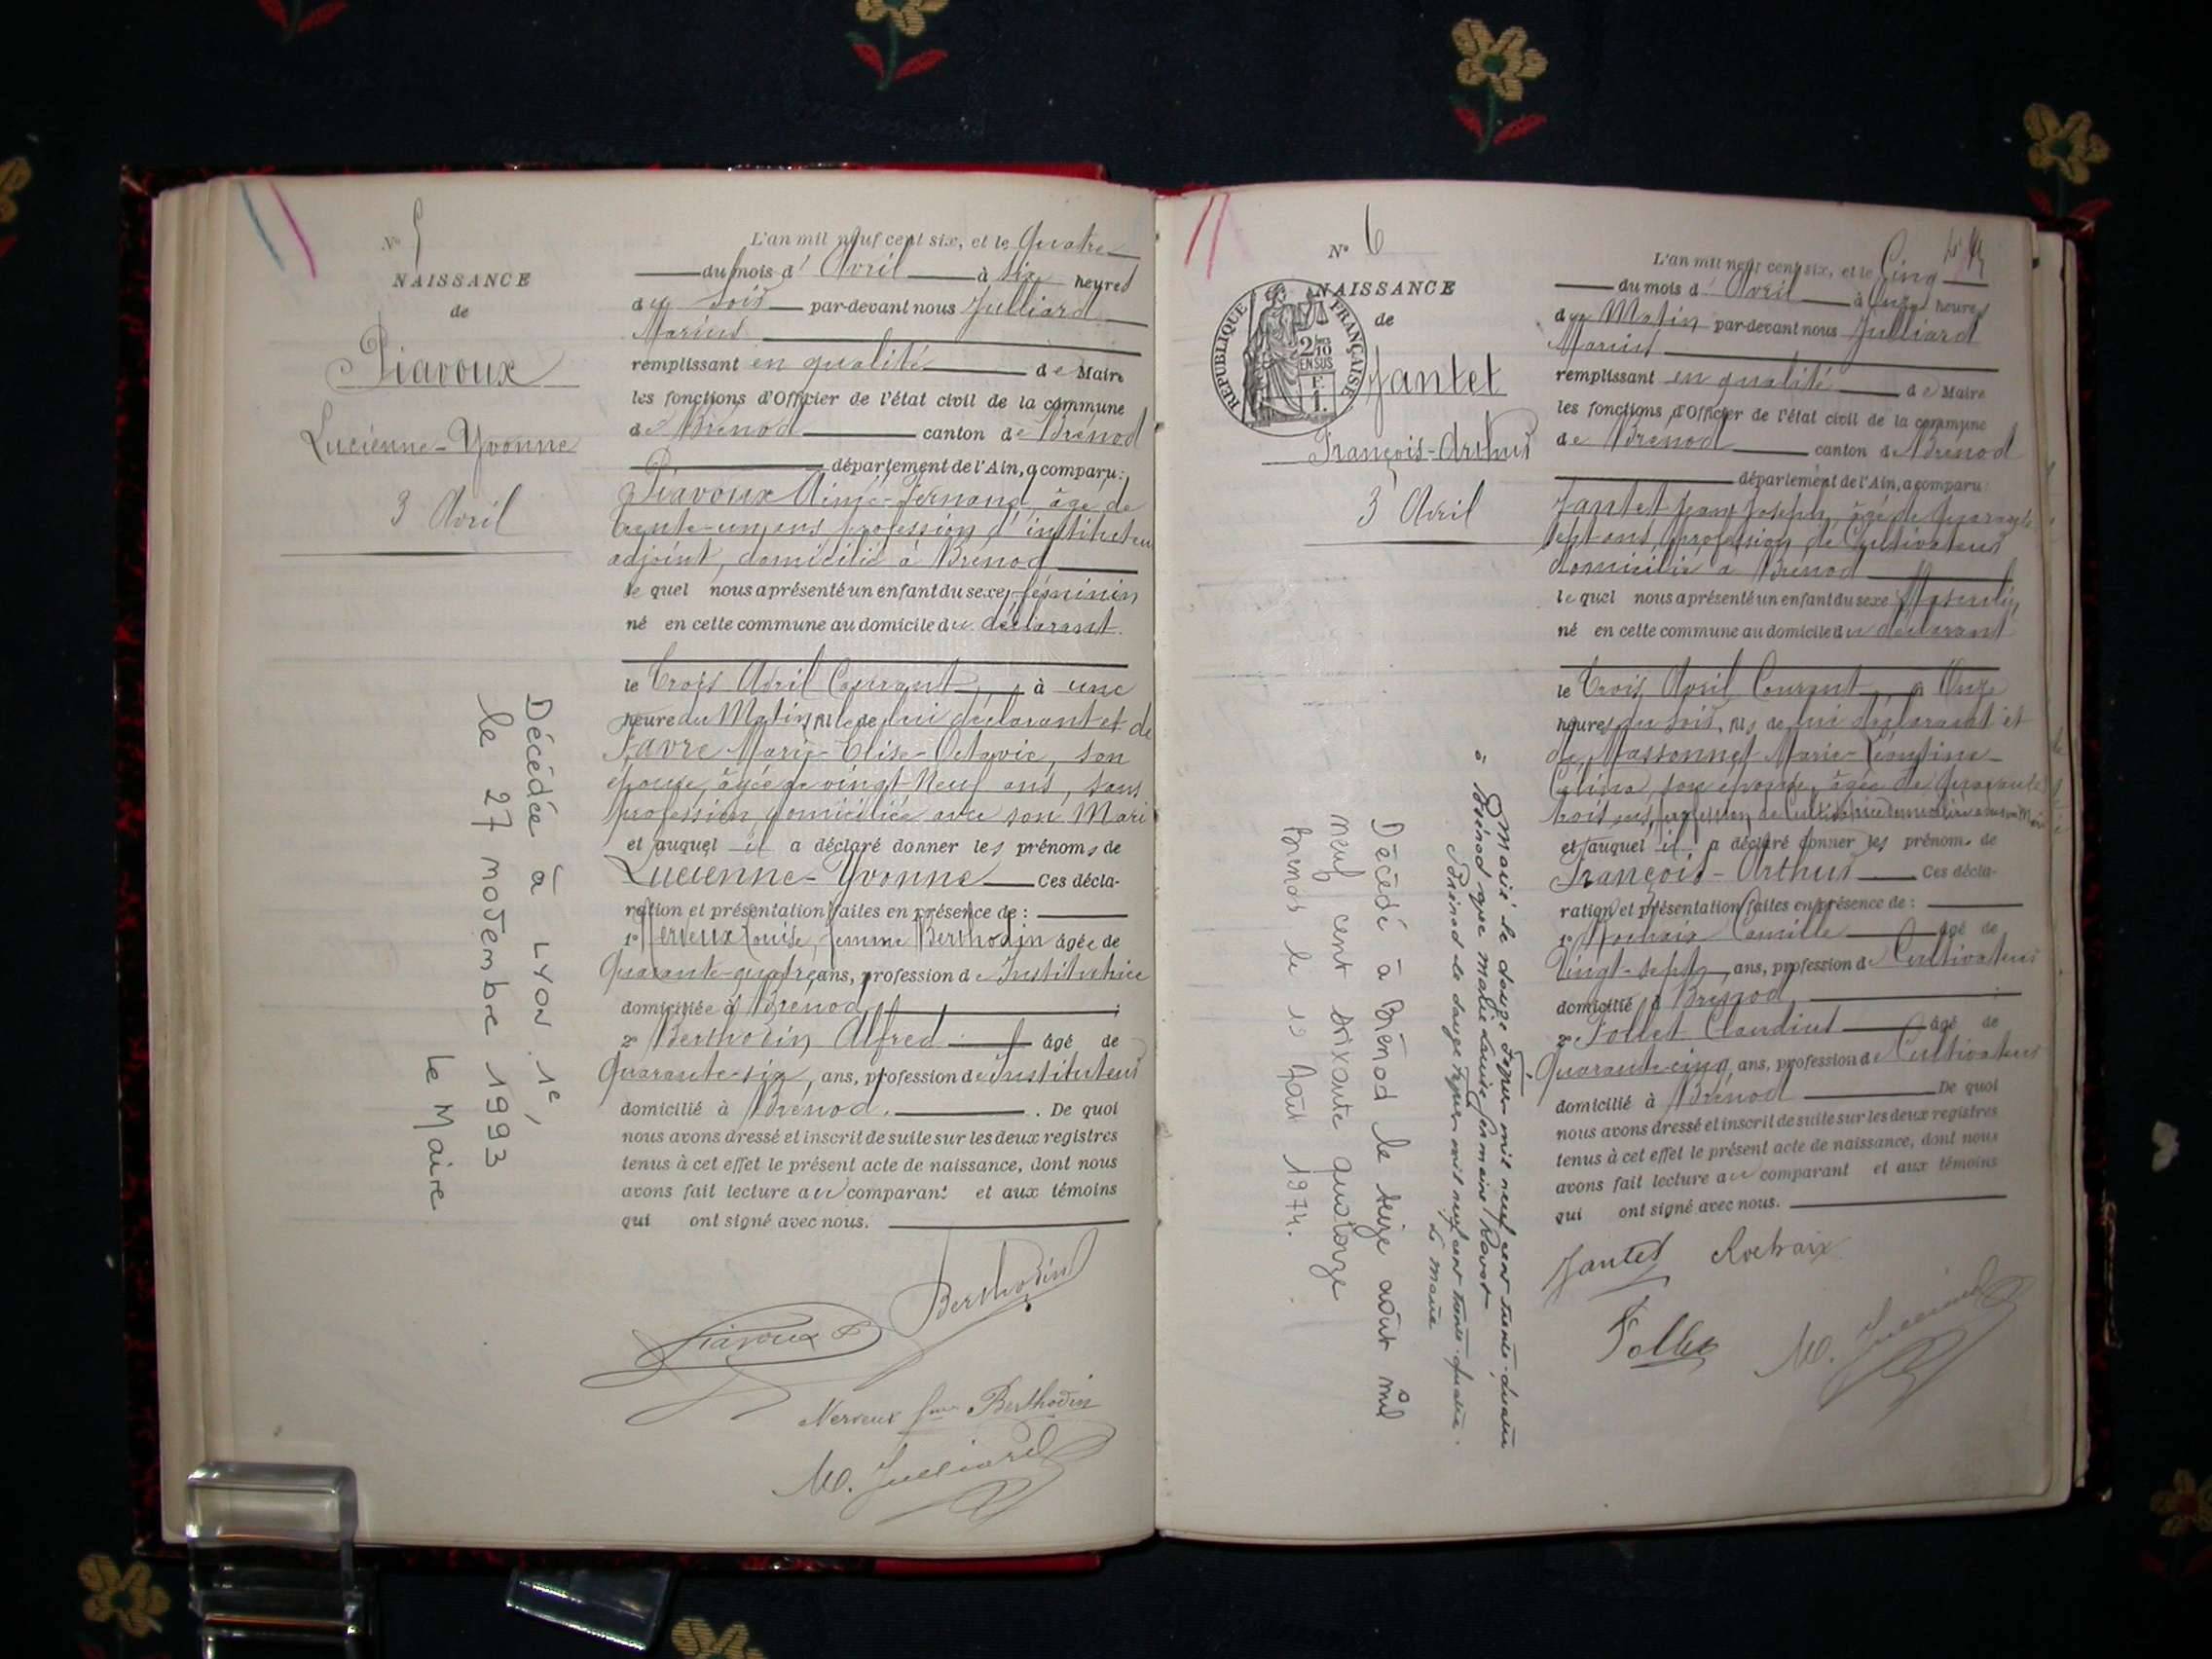 N° 5
NAISSANCE
de
Piavoux
Lucienne-Yvonne
3 Avril
Décédée à LYON 1e,
le 27 novembre 1993
Le Maire
L'an mil neuf cent six, et le Quatre
du mois d' Avril à six heures
du soir par-devant nous Julliard
Marius
remplissant en qualité de Maire
les fonctions d'Officier de l'état civil de la commune
de Brénod canton de Brénod
département de l'Ain, a comparu:
Piavoux Aimé-Fernand, âgé de
trente-un ans, profession d'instituteur
adjoint, domicilié à Brénod
le quel nous a présenté un enfant du sexe féminin
né en cette commune au domicile du déclarant.
le trois Avril Courant, à une
heure du Matin, fille de lui déclarant et de
Favre Marie-Elise-Octavie, son
épouse, âgée de vingt-neuf ans, sans
profession domiciliée avec son Mari
et auquel il a déclaré donner les prénoms de
Lucienne-Yvonne Ces décla-
ration et présentation faites en présence de :
1° Nerveux Louise, femme Berthodin âgée de
Quarante-quatre ans, profession d'Institutrice
domiciliée à Brénod ;
2° Berthodin Alfred âgé de
Quarante-six, ans, profession d'instituteur
domicilié à Brénod. . De quoi
nous avons dressé et inscrit de suite sur les deux registres
tenus à cet effet le présent acte de naissance, dont nous
avons fait lecture au comparant et aux témoins
qui ont signé avec nous.
Berthodin
Piavoux
Nerveux fme Berthodin
M. Julliard
N° 6
NAISSANCE
de
RÉPUBLIQUE FRANÇAISE
2/10
EN SUS
F.
1.
Jantet
François-Arthur
3 Avril
Marié le douze février mil neuf cent trente-quatre
à Brénod avec Marie Louise Germaine Ravot
Brénod le douze février mil neuf cent trente-quatre.
Le maire
Décédé à Brénod le seize août mil
neuf cent soixante quatorze
Brénod le 19 Août 1974.
L'an mil neuf cent six, et le Cinq
du mois d' Avril à Onze heures
du Matin par-devant nous Julliard
Marius
remplissant en qualité de Maire
les fonctions d'Officier de l'état civil de la commune
de Brénod canton de Brénod
département de l'Ain, a comparu
Jantet Jean Joseph, âgé de quarante
sept ans, profession de Cultivateur
domicilié à Brénod
le quel nous a présenté un enfant du sexe Masculin
né en cette commune au domicile du déclarant
le trois Avril Courant, à Onze
heures du soir, fils de lui déclarant et
de Massonnet Marie-Léontine-
son épouse, âgée de quarante
trois ans, profession de Cultivatrice domiciliée avec son Mari
et auquel il a déclaré donner les prénoms de
François-Arthur Ces décla-
ration et présentation faites en présence de :
1° Rochaix Camille âgé de
Vingt-sept, ans, profession de Cultivateur
domicilié à Brénod ;
2° Follet Claudius âgé de
Quarante-cinq ans, profession de Cultivateur
domicilié à Brénod De quoi
nous avons dressé et inscrit de suite sur les deux registres
tenus à cet effet le présent acte de naissance, dont nous
avons fait lecture au comparant et aux témoins
qui ont signé avec nous.
Jantet Rochaix
Follet M. Julliard